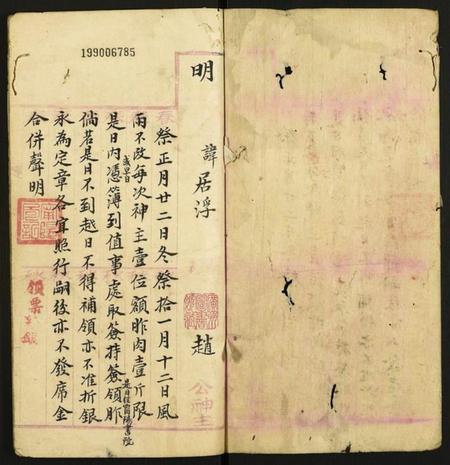 199006785
明
諱居浮 趙
公神主
春祭正月廿二日冬祭拾一月十二日風
雨不改每次神主壹位額胙肉壹斤限
是日內憑簿到值事處取簽持簽領胙
倘若是日不到越日不得補領亦不准折銀
永為定章各宜照行嗣後亦不發席金
合併聲明
領票